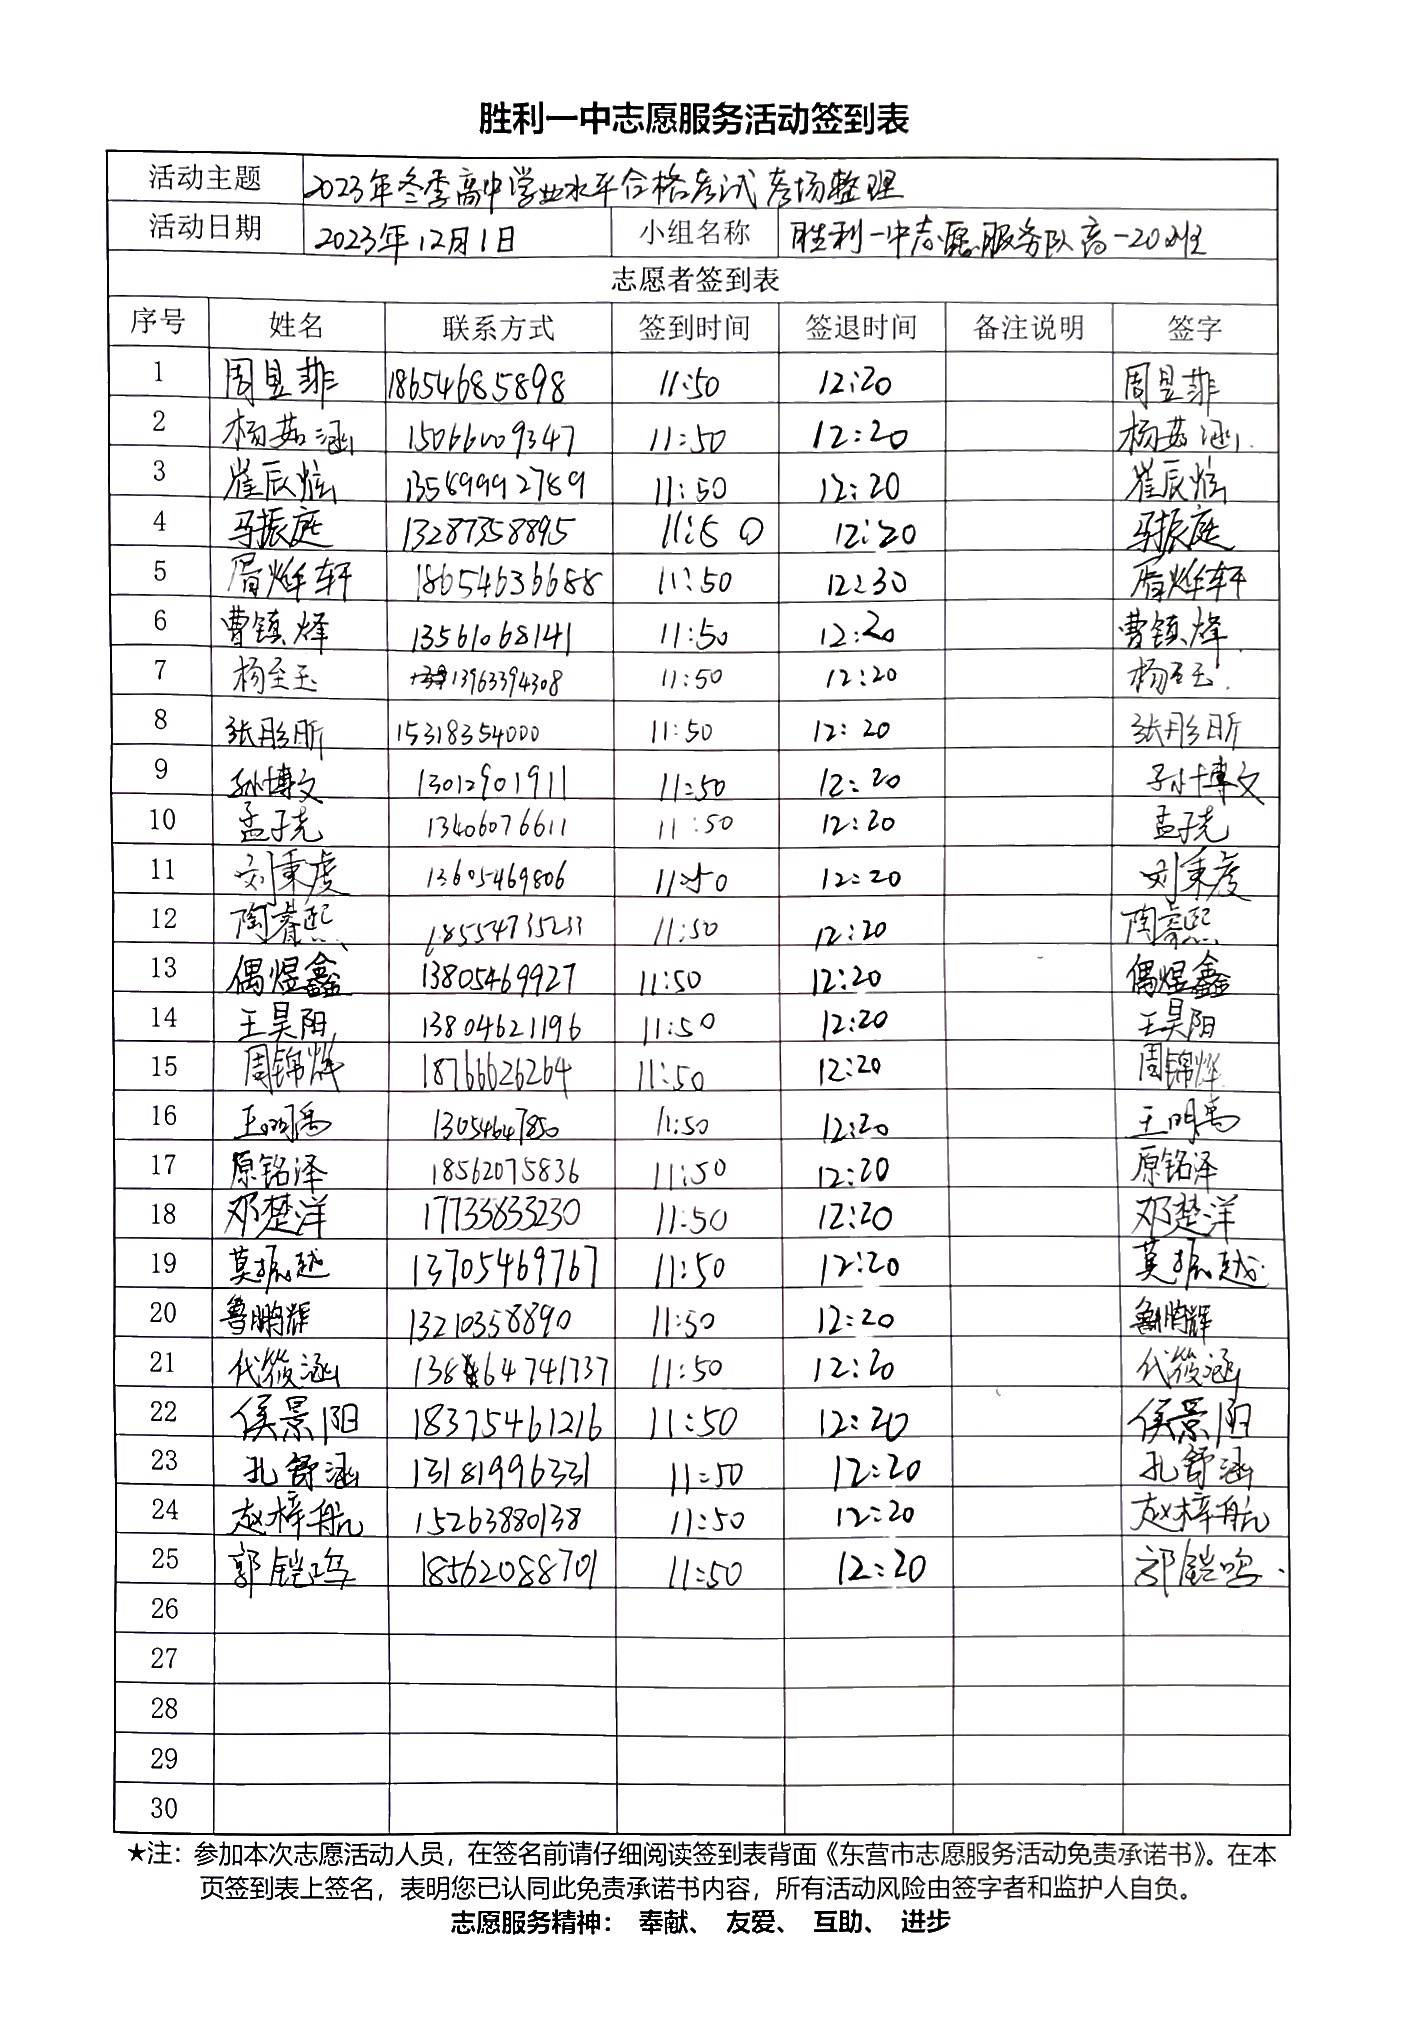 胜利一中志愿服务活动签到表
活动主题 2023年冬季高中学业水平合格考试考场整理
活动日期 2023年12月1日 小组名称 胜利一中志愿服务队高一20班
志愿者签到表
序号 姓名 联系方式 签到时间 签退时间 备注说明 签字
1 周昱菲 18654685898 11:50 12:20 周昱菲
2 杨茹涵 15066009347 11:50 12:20 杨茹涵
3 崔辰炫 13589992789 11:50 12:20 崔辰炫
4 马振庭 13287358895 11:50 12:20 马振庭
5 屑烨轩 18654636688 11:50 12:30 屑烨轩
6 曹镇烽 13561068141 11:50 12:20 曹镇烽
7 杨至玉 13963394308 11:50 12:20 杨至玉
8 张彤昕 15318354000 11:50 12:20 张彤昕
9 孙博文 13012901911 11:50 12:20 孙博文
10 孟子尧 13406076611 11:50 12:20 孟子尧
11 刘秉虔 13605469806 11:50 12:20 刘秉虔
12 陶睿熙 18554735233 11:50 12:20 陶睿熙
13 偶煜鑫 13805469927 11:50 12:20 偶煜鑫
14 王昊阳 13804621196 11:50 12:20 王昊阳
15 周锦烨 18766626264 11:50 12:20 周锦烨
16 王明禹 13054647850 11:50 12:20 王明禹
17 原铭泽 18562075836 11:50 12:20 原铭泽
18 邓楚洋 17733833230 11:50 12:20 邓楚洋
19 莫振越 13705469767 11:50 12:20 莫振越
20 鲁鹏辉 13210358890 11:50 12:20 鲁鹏辉
21 代筱涵 13864741737 11:50 12:20 代筱涵
22 侯景阳 18375461216 11:50 12:20 侯景阳
23 孔舒涵 13181996331 11:50 12:20 孔舒涵
24 赵梓航 15263880138 11:50 12:20 赵梓航
25 郭铠鸣 18562088701 11:50 12:20 郭铠鸣
26
27
28
29
30
★注：参加本次志愿活动人员，在签名前请仔细阅读签到表背面《东营市志愿服务活动免责承诺书》。在本
页签到表上签名，表明您已认同此免责承诺书内容，所有活动风险由签字者和监护人自负。
志愿服务精神： 奉献、 友爱、 互助、 进步